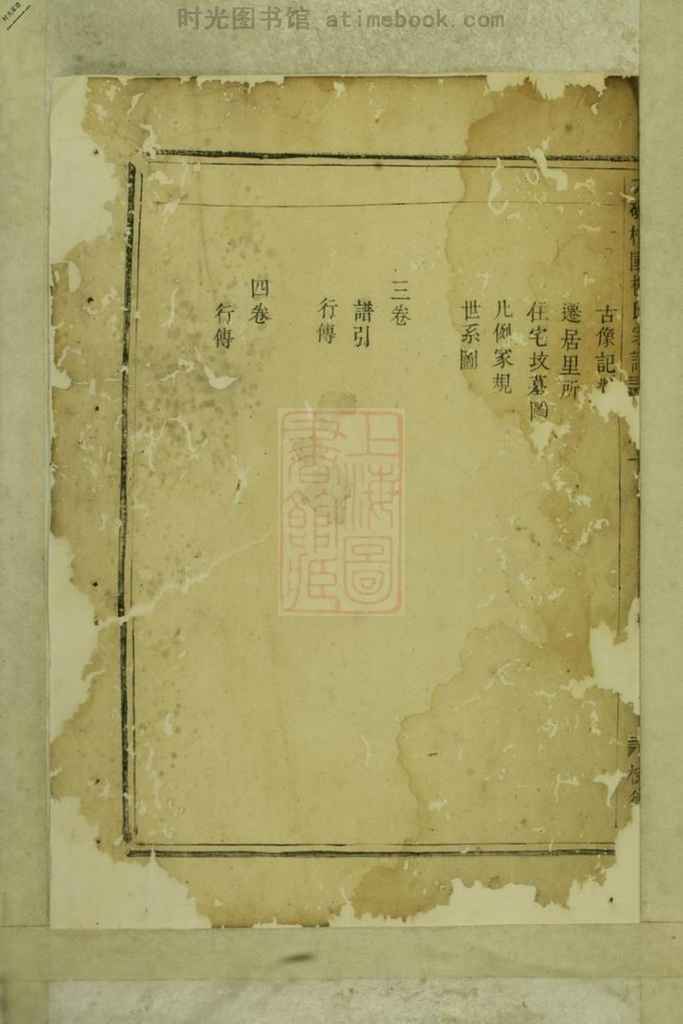 时光图书馆 atimebook.com
古像記
遷居里所
住宅坟墓圖
家規
世系圖
三卷
譜引
行傳
四卷
行傳
上海圖
書館藏